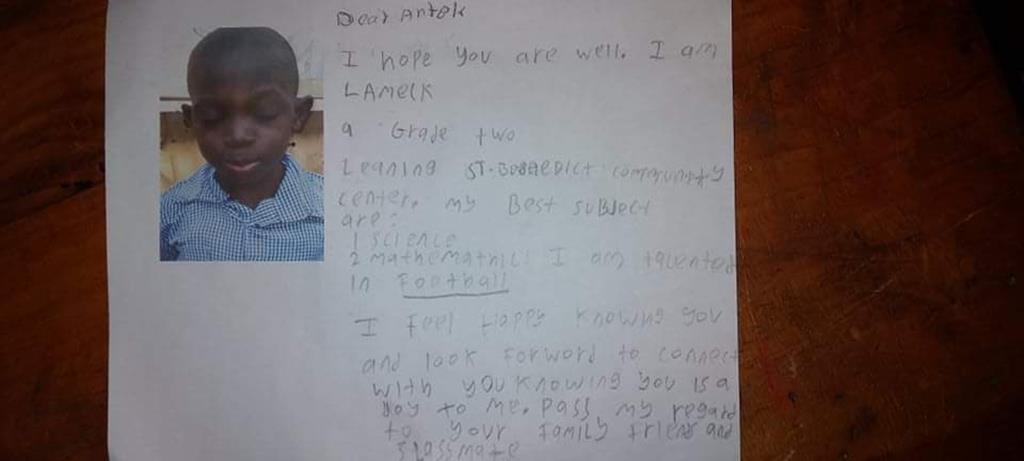 Dear Antek
I hope you are well. I am
LAMECK
a Grade two
Leaning ST. community
center. my Best subject
are:
1 science
2 I am talented
in Football
I Feel Happy knowing you
and look Forword to connect
with you knowing you is a
Joy to me. Pass my regard
to your Family Friend and